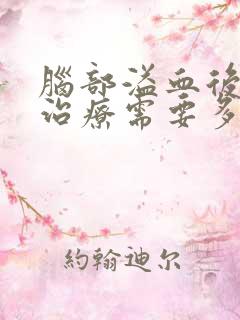 腦部溢血後
治療需要多
約翰迪尔